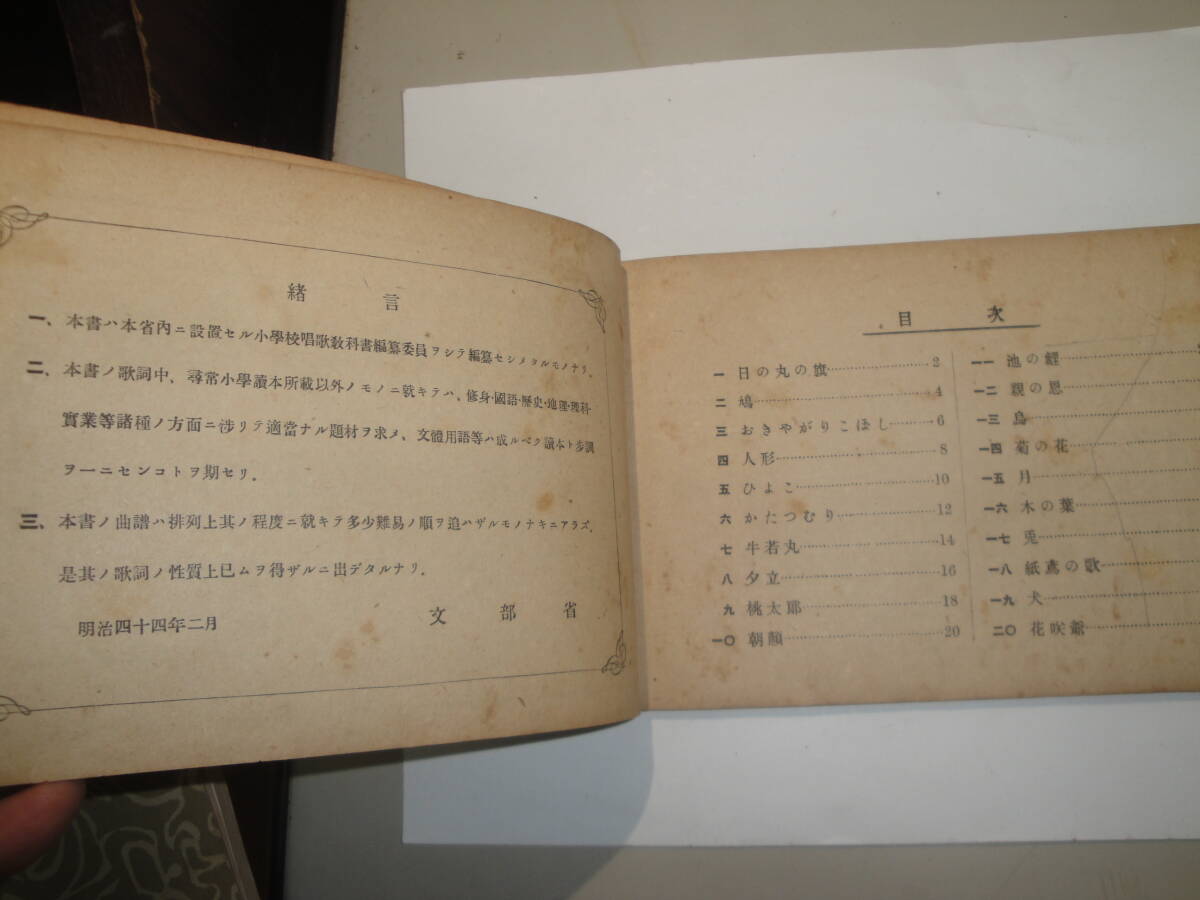 緖言
一、本書ハ本省內ニ設置セル小學校唱歌敎科書編纂委員ヲシテ編纂セシメタルモノナリ。
二、本書ノ歌詞中、尋常小學讀本所載以外ノモノニ就キテハ、修身・國語・歷史・地理・理科・
實業等諸種ノ方面ニ涉リテ適當ナル題材ヲ求メ、文體用語等ハ成ルベク讀本ト步調
ヲ一ニセンコトヲ期セリ。
三、本書ノ曲譜ハ排列上其ノ程度ニ就キテ多少難易ノ順ヲ追ハザルモノナキニアラズ。
是其ノ歌詞ノ性質上已ムヲ得ザルニ出デタルナリ。
明治四十四年二月 文部省
目次
一 日の丸の旗 2
二 鳩 4
三 おきやがりこぼし 6
四 人形 8
五 ひよこ 10
六 かたつむり 12
七 牛若丸 14
八 夕立 16
九 桃太郎 18
一〇 朝顏 20
一一 池の鯉
一二 親の恩
一三 烏
一四 菊の花
一五 月
一六 木の葉
一七 兎
一八 紙鳶の歌
一九 犬
二〇 花咲爺